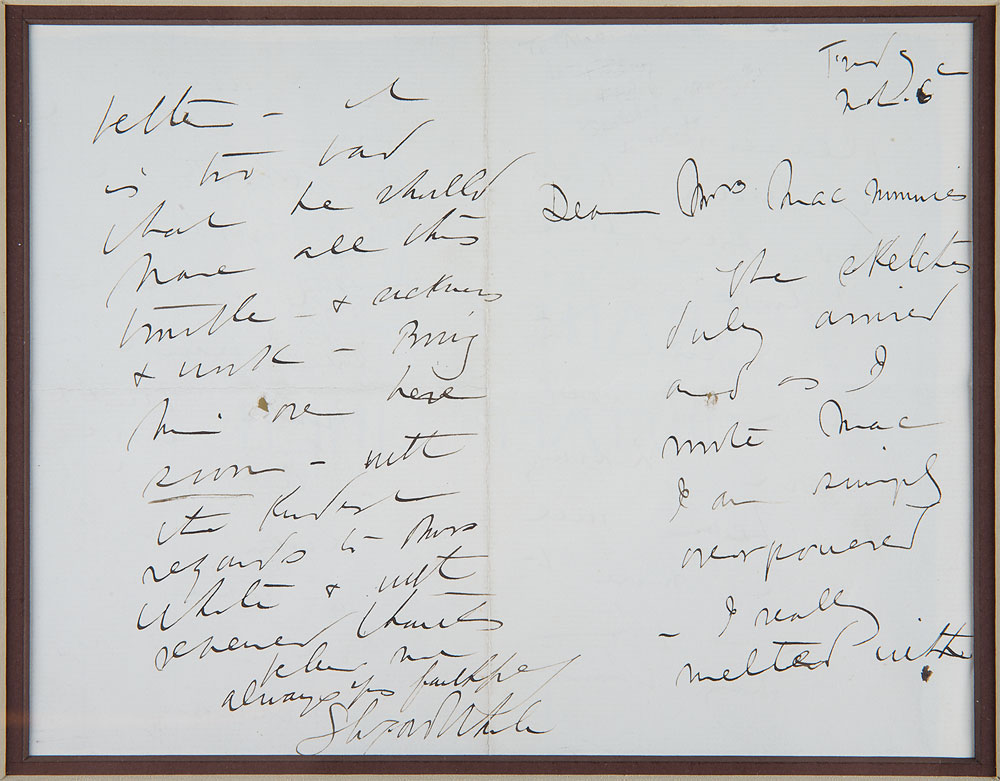 Nov. 6
Dear Mrs Mac Monnies
The sketches
duly arrived
and as I
wrote Mac
I am simply
overpowered
– I really
melted with
better – it
is too bad
that he should
have all this
trouble – & sickness
& work – Bring
him over here
soon – with
the kindest
regards to Mrs
White & with
renewed thanks
believe me
always yrs faithfully
Stanford White